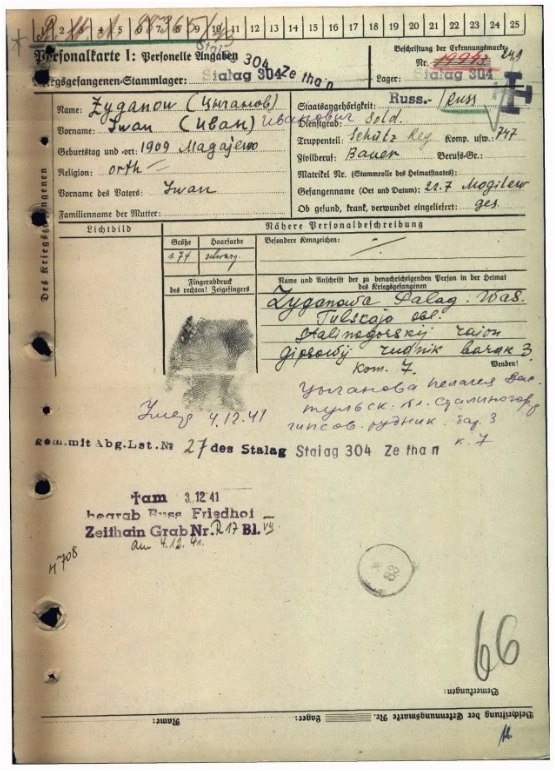 1 2 3 4 5 6 7 8 9 10 11 12 13 14 15 16 17 18 19 20 21 22 23 24 25
Personalkarte I: Personelle Angaben
Kriegsgefangenen-Stammlager: Stalag 304 Zethan
304
Beschriftung der Erkennungsmarke
Nr.
Lager: Stalag 304
Des Kriegsgefangenen
Name: Zyganow (Цыганов)
Vorname: Iwan (Иван) Иванович
Geburtstag und -ort: 1909 Magajewo
Religion: orth
Vorname des Vaters: Iwan
Familienname der Mutter:
Staatsangehörigkeit: Russ.- Russ
Dienstgrad: Sold.
Truppenteil: Schütz Reg. Komp. usw.: 747
Zivilberuf: Bauer Berufs-Gr.:
Matrikel Nr. (Stammrolle des Heimatstaates):
Gefangennahme (Ort und Datum): 22.7 Mogilew
Ob gesund, krank, verwundet eingeliefert: ges.
Lichtbild
Nähere Personalbeschreibung
Größe Haarfarbe
174 schwarz
Besondere Kennzeichen:
Fingerabdruck
des rechten! Zeigefingers
Name und Anschrift der zu benachrichtigenden Person in der Heimat
des Kriegsgefangenen
Zyganowa Palag. Was.
Tulskaja obl.
Stalinogorskij raion
gipsowij rudnik barak 3
Wenden!
kom. 7.
Цыганова Пелагея Вас
Тульск. обл. Сталиногор
гипсов. рудник. бар. 3
к. 7
Умер 4.12.41
gem. mit Abg. Lst. № 27 des Stalag Stalag 304 Zethan
†am 3.12.41
begrab Russ Friedhof
Zeithain Grab Nr. R 17 Bl. VI
am 4.12.41
M 708
66
Bemerkungen:
Beschriftung der Erkennungsmarke Nr. Lager: Name: